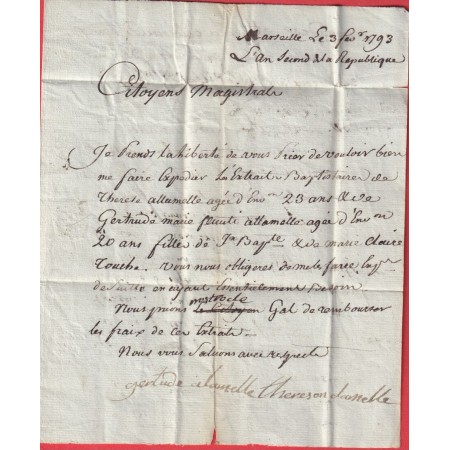 Marseille Le 3 fevr 1793
L'an Second de la Republique
Citoyens Magistrats
Je Prends la liberté de vous Prier de vouloir bien
me faire Expedier les Extrait Baptistaire de
Therese allamelle agée d'Envon 23 ans & de
Gertrude marie allamelle agée d'Envon
20 ans filles de Jn Bapte & de marie Claire
Touche. vous nous obligeres de me les faire
de suite en ayant Essentielement Besoin.
Nous prions nostre oncle Gal de rembourser
les fraix de ces Extraits.
Nous vous Saluons avec respect
gertude alamelle therese alamelle